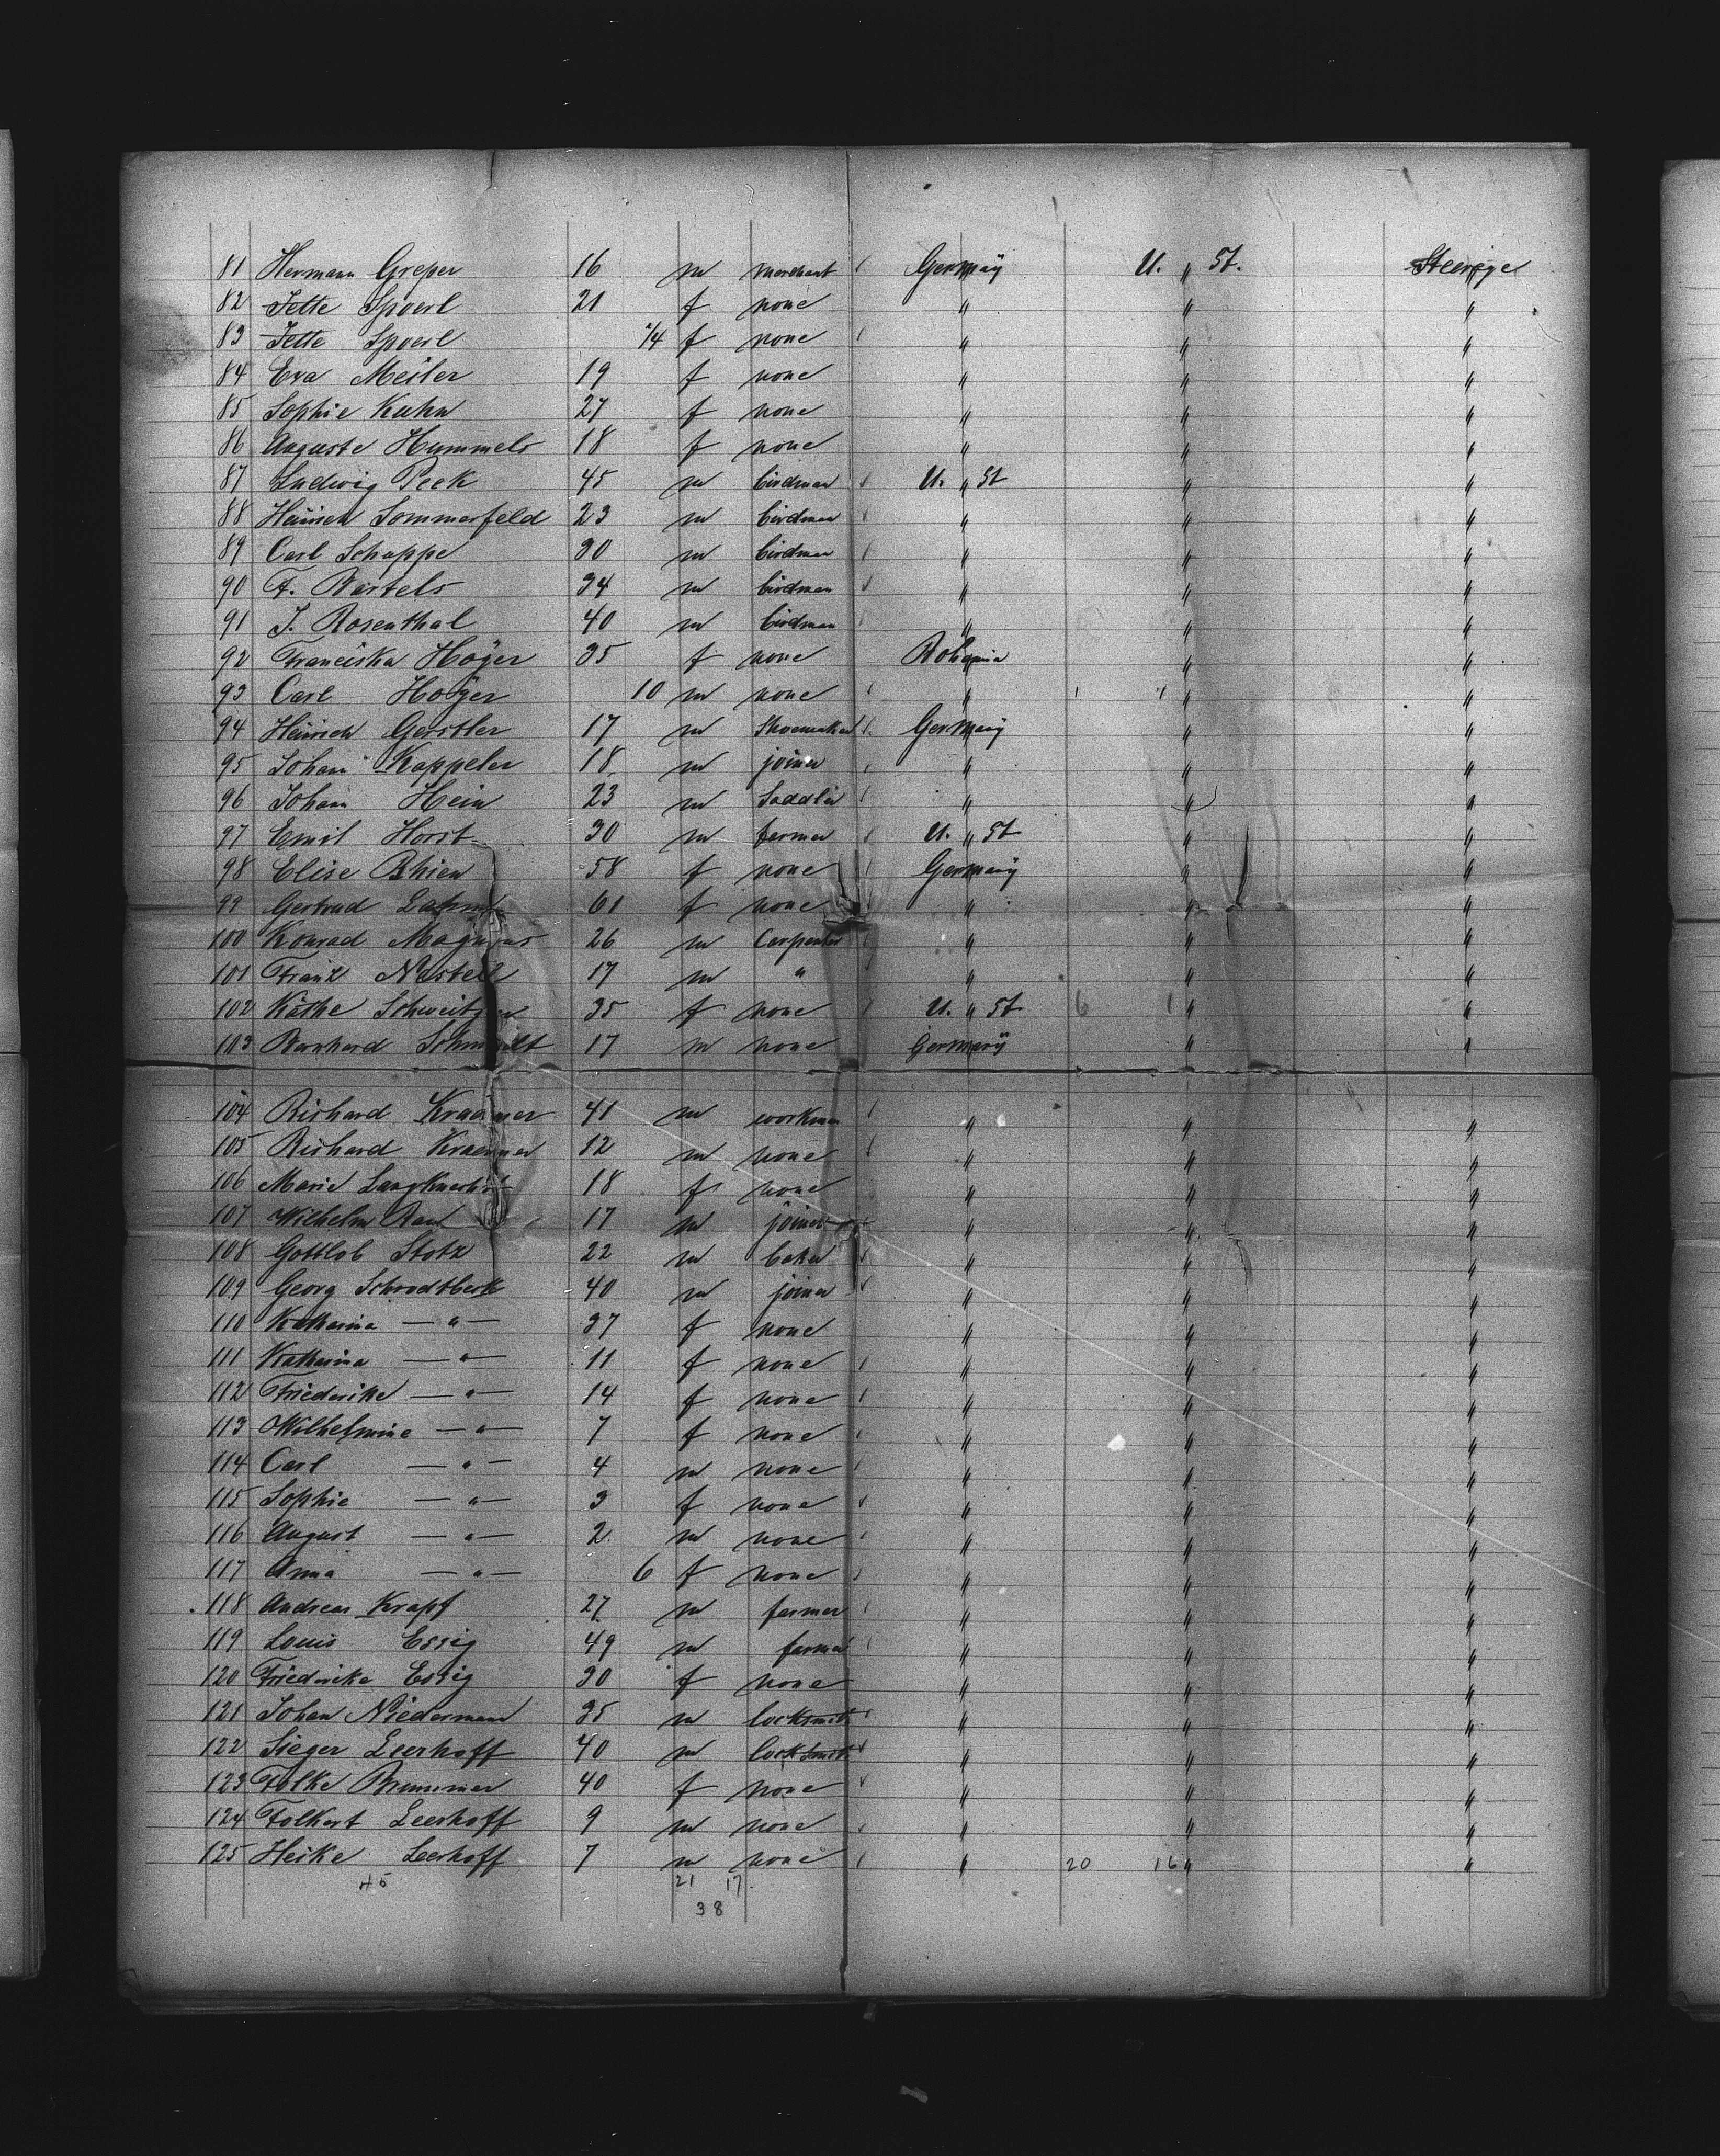 81 Hermann Greper 16 m merchant Germany U. " St. Steerage
82 Jette Spoerl 21 f none " " "
83 Jette Spoerl 1/4 f none " " "
84 Eva Meiler 19 f none " " "
85 Sophie Kuhn 27 f none " " "
86 Auguste Hummels 18 f none " " "
87 Ludwig Peek 45 m birdman U. " St " "
88 Heinrich Sommerfeld 23 m birdman " " "
89 Carl Schappe 30 m birdman " " "
90 F. Bartels 34 m birdman " " "
91 J. Rosenthal 40 m birdman " " "
92 Franciska Höyer 35 f none Bohemia " "
93 Carl Höyer 10 m none " 1 1 " "
94 Heinrich Gerstler 17 m Shoemaker Germany " "
95 Johann Kappeler 18 m joiner " " "
96 Johann Hein 23 m Saddler " " "
97 Emil Horst 30 m farmer U. " St " "
98 Elise Rhien 58 f none Germany " "
99 Gertrud 61 f none " " "
100 Konrad Magnus 26 m Carpenter " " "
101 Frank Nestell 17 m " " " "
102 Käthe Schweitzer 35 f none U. " St 6 1 " "
103 Bernhard Schmidt 17 m none Germany " "
104 Richard Kraemer 41 m workman " " "
105 Richard Kraemer 12 m none " " "
106 Marie 18 f none " " "
107 Wilhelm Rau 17 m joiner " " "
108 Gottlob Stotz 22 m baker " " "
109 Georg Schrodtbeck 40 m joiner " " "
110 Katharina — " — 37 f none " " "
111 Katharina — " — 11 f none " " "
112 Friederike — " — 14 f none " " "
113 Wilhelmine — " — 7 f none " " "
114 Carl — " — 4 m none " " "
115 Sophie — " — 3 f none " " "
116 August — " — 2 m none " " "
117 Anna — " — 6 f none " " "
118 Andreas Krapf 27 m farmer " " "
119 Louis Essig 49 m farmer " " "
120 Friedricke Essig 30 f none " " "
121 Johan Niedermann 35 m locksmith " " "
122 Sieger Leerhoff 40 m locksmith " " "
123 Folke Brummer 40 f none " " "
124 Folkert Leerhoff 9 m none " " "
125 Heike Leerhoff 7 m none " 20 16 " "
45 21 17
38